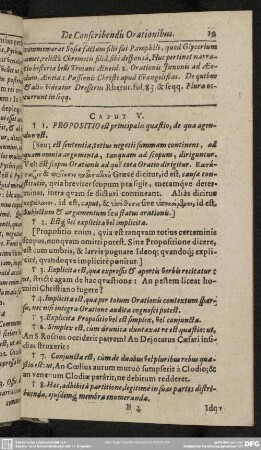 De Conscribendis Orationibus. 19
commemorat Sosiæ factum filii sui Pamphili, quod Glycerium
amet, relictâ Chremetis filiâ, sibi desponsâ. Huc pertinet narra-
tio historica belli Trojani Æneid. 2. Orationis Junonis ad Æo-
lum, Æneid. 1. Passionis Christi apud Evangelistas. De quibus
& aliis videatur Dresserus Rhetor. fol. 83. & seqq. Plura oc-
current in seqq.
CAPUT V.
† 1. PROPOSITIO est principalis quæstio, de qua agen-
dum est.
[Seu; est sententia, totius negotii summam continens, ad
quam omnia argumenta, tanquam ad scopum, diriguntur.
Vel: est scopus Orationis ad quem tota Oratio dirigitur.
Græcè dicitur, id est, causæ con-
stitutio, quia breviter scopum præfigit, metamque deter-
minat, intra quam se dictio contineat. Aliàs dicitur
id est, caput, &
id est,
Subjectum & argumentum seu status orationis.]
† 2. Estq; vel explicita vel implicita.
[Propositio enim, quia est tanquam totius certaminis
scopus, nunquam omitti potest. Sine Propositione dicere,
est cum umbris, & larvis pugnare. Ideoq; quandoq; expli-
citè, quandoque implicitè ponitur.]
† 3. Explicita est, quæ expressis & apertis verbis recitatur:
ut, strictè agam de hac quæstione: An pestem liceat ho-
mini Christiano fugere?
† 4. Implicita est, quæ per totum Orationis contextum spar-
sa, nec nisi integra Oratione audita cognosci potest.
† 5. Explicita Propositio vel est simplex, vel conjuncta.
† 6. Simplex est, cùm de unica duntaxat re est quæstio: ut,
An S. Roscius occiderit patrem? An Dejotarus Cæsari insi-
dias struxerit?
† 7. Conjuncta est, cùm de duabus vel pluribus rebus quæ-
stio est: ut, An Cœlius aurum mutuò sumpserit à Clodio; &
an venenum Clodiæ parârit, ne debitum redderet.
† 8. Hæc, adhibitâ partitione, legitimè in suas partes distri-
buenda, ejusdemq; membra enumeranda.
B 2 Idq;